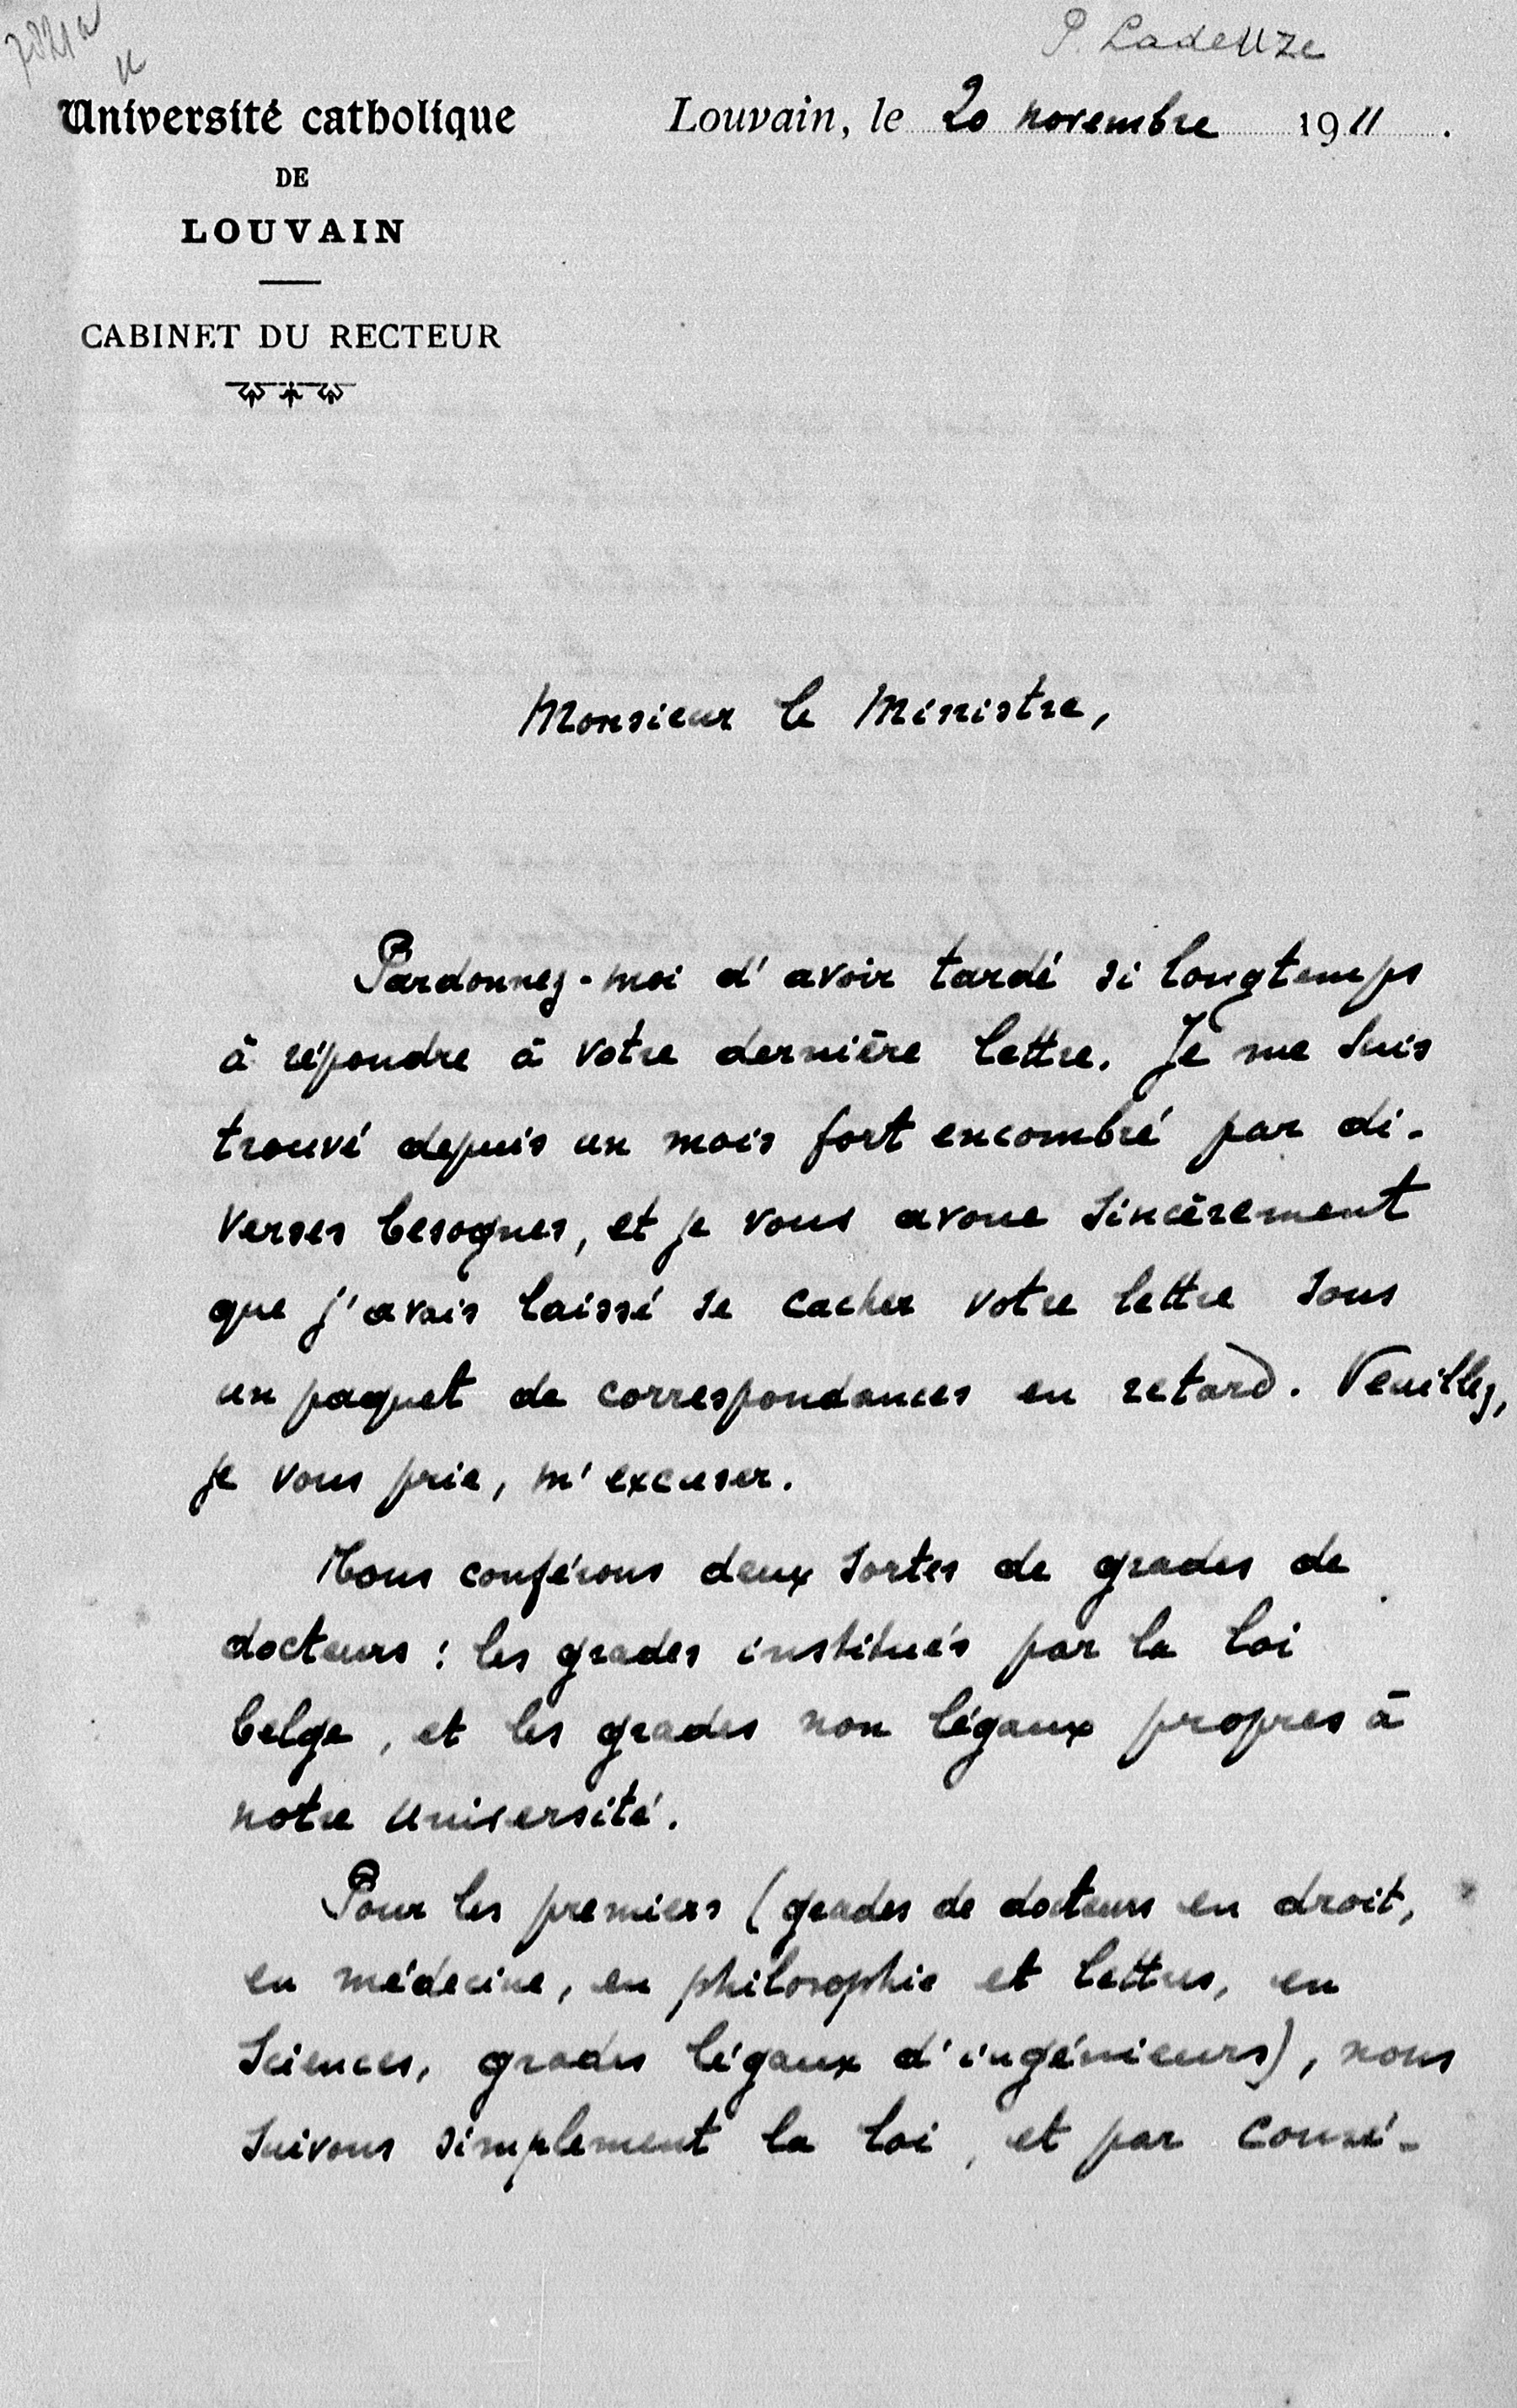 P. Ladeuze
Université catholique
DE
LOUVAIN
CABINET DU RECTEUR
Louvain, le 20 novembre 1911.
Monsieur le Ministre,
Pardonnez-moi d'avoir tardé si longtemps
à répondre à votre dernière lettre. Je me suis
trouvé depuis un mois fort encombré par di-
verses besognes, et je vous avoue sincèrement
que j'avais laissé se cacher votre lettre sous
un paquet de correspondances en retard. Veuillez,
je vous prie, m'excuser.
Nous conférons deux sortes de grades de
docteurs : les grades institués par la loi
belge, et les grades non légaux propres à
notre Université.
Pour les premiers (grades de docteurs en droit,
en médecine, en philosophie et lettres, en
Sciences, grades légaux d'ingénieurs), nous
suivons simplement la loi, et par consé-